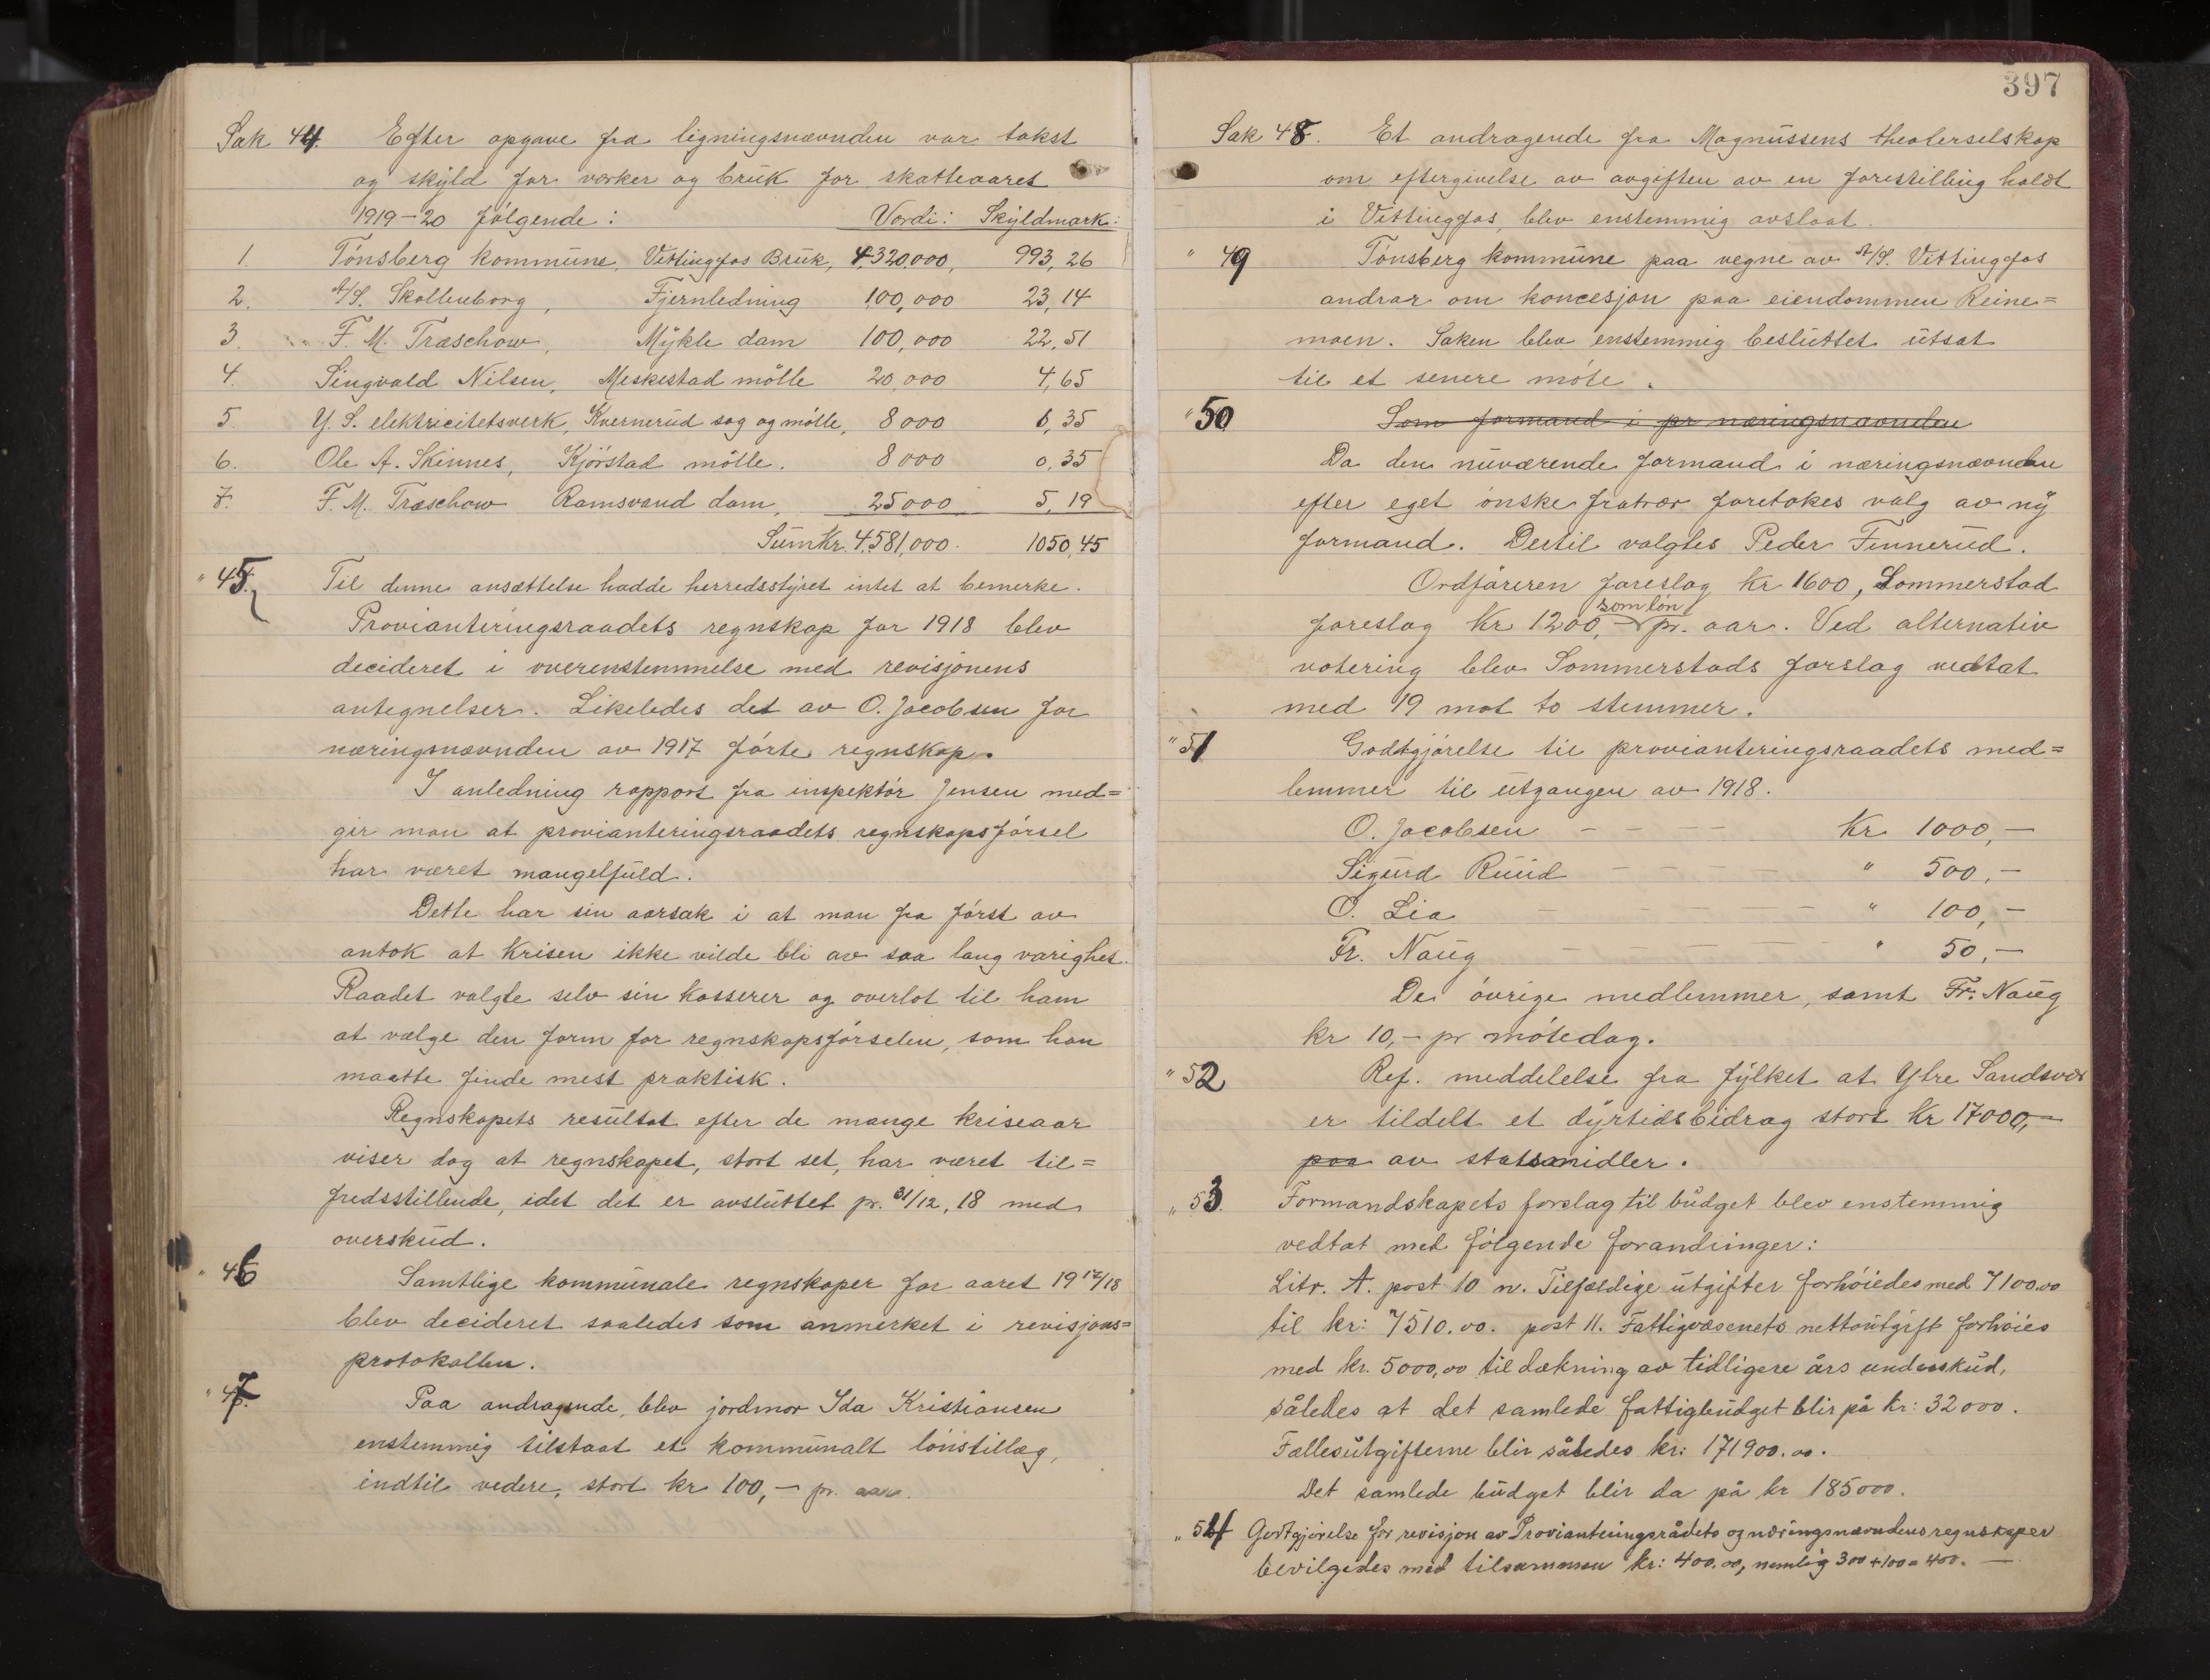 Sak 44. Efter opgave fra ligningsnævnden var takst
og skyld for verker og bruk for skatteaaret
1919-20 følgende: Verdi: Skyldmark:
1. Tønsberg kommune, Vittingfos Bruk, 4,320,000, 993,26
2. A/S. Skollenborg, Fjernledning 100,000 23,14
3. F. M. Træschow, Mykle dam 100,000 22,51
4. Singvald Nilsen, Meskestad mølle 20,000 4,65
5. Y. S. elektricitetsverk, Kvernerud sag og mølle, 8000 1,35
6. Ole A. Skinnes, Kjørstad mølle. 8000 0,35
7. F. M. Træschow Ramsvand dam, 25000 5,19
Sum Kr. 4,581,000. 1050,45
" 45. Til denne ansættelse hadde herredsstyret intet at bemerke.
Provianteringsraadets regnskap for 1918 blev
decideret i overenstemmelse med revisjonens
antegnelser. Likeledes det av O. Jacobsen for
næringsnævnden av 1917 førte regnskap.
I anledning rapport fra inspektør Jensen med=
gir man at provianteringsraadets regnskapsførsel
har været mangelfuld.
Dette har sin aarsak i at man fra først av
antok at krisen ikke vilde bli av saa lang varighet.
Raadet valgte selv sin kasserer og overlot til ham
at vælge den form for regnskapsførselen, som han
maatte finde mest praktisk.
Regnskapets resultat efter de mange kriseaar
viser dog at regnskapet, stort set, har været til=
fredsstillende, idet det er avsluttet pr. 31/12, 18 med
overskud.
" 46 Samtlige kommunale regnskaper for aaret 1917/18
blev decideret saaledes som anmerket i revisjons=
protokollen.
" 47. Paa andragende, blev jordmor Ida Kristiansen
enstemmig tilstaat et kommunalt lønstillæg,
indtil vedere, stort kr 100,- pr. aar.
397
Sak 48. Et andragende fra Magnussens theaterselskap
om eftergivelse av avgiften av en forestilling holdt
i Vittingfos, blev enstemmig avslaat.
" 49 Tønsberg kommune paa vegne av A/S. Vittingfos
andrar om koncesjon paa eiendommen Reine=
moen. Saken blev enstemmig besluttet utsat
til et senere møte.
" 50 Som formand i pr næringsnævnden
Da den nuværende formand i næringsnævnden
efter eget ønske fratrær foretakes valg av ny
formand. Dertil valgtes Peder Finnerud.
Ordføreren foreslog kr 1600, Sommerstad
foreslog kr 1200,- som løn pr. aar. Ved alternativ
votering blev Sommerstads forslag vedtat
med 19 mot to stemmer.
" 51 Godtgjørelse til provianteringsraadets med=
lemmer til utgangen av 1918.
O. Jacobsen - - - Kr 1000,-
Sigurd Ruud - - - - " 500,-
O. Lia - - - - - " 100,-
Fr. Naug - - - - - " 50,-
De øvrige medlemmer, samt Fr. Naug
kr 10,- pr møtedag.
" 52 Ref. meddelelse fra fylket at Ytre Sandsvær
er tildelt et dyrtidsbidrag stort kr 17000,-
paa av statsmidler.
" 53. Formandskapets forslag til budget blev enstemmig
vedtat med følgende forandringer:
Litr. A. post 10 n. Tilfældige utgifter forhøiedes med 7100.00
til kr: 7510.00. post 11. Fattigvæsenets nettoutgift forhøies
med kr. 5000,00 til dækning av tidligere års underskud,
således at det samlede fattigbudget blir på kr: 32000.
Fællesutgifterne blir således kr: 171900.00.
Det samlede budget blir da på kr 185000.
" 54 Godtgjørelse for revisjon av Provianteringsrådets og næringsnævndens regnskaper
bevilgedes med tilsammen kr: 400.00, nemlig 300+100=400. -